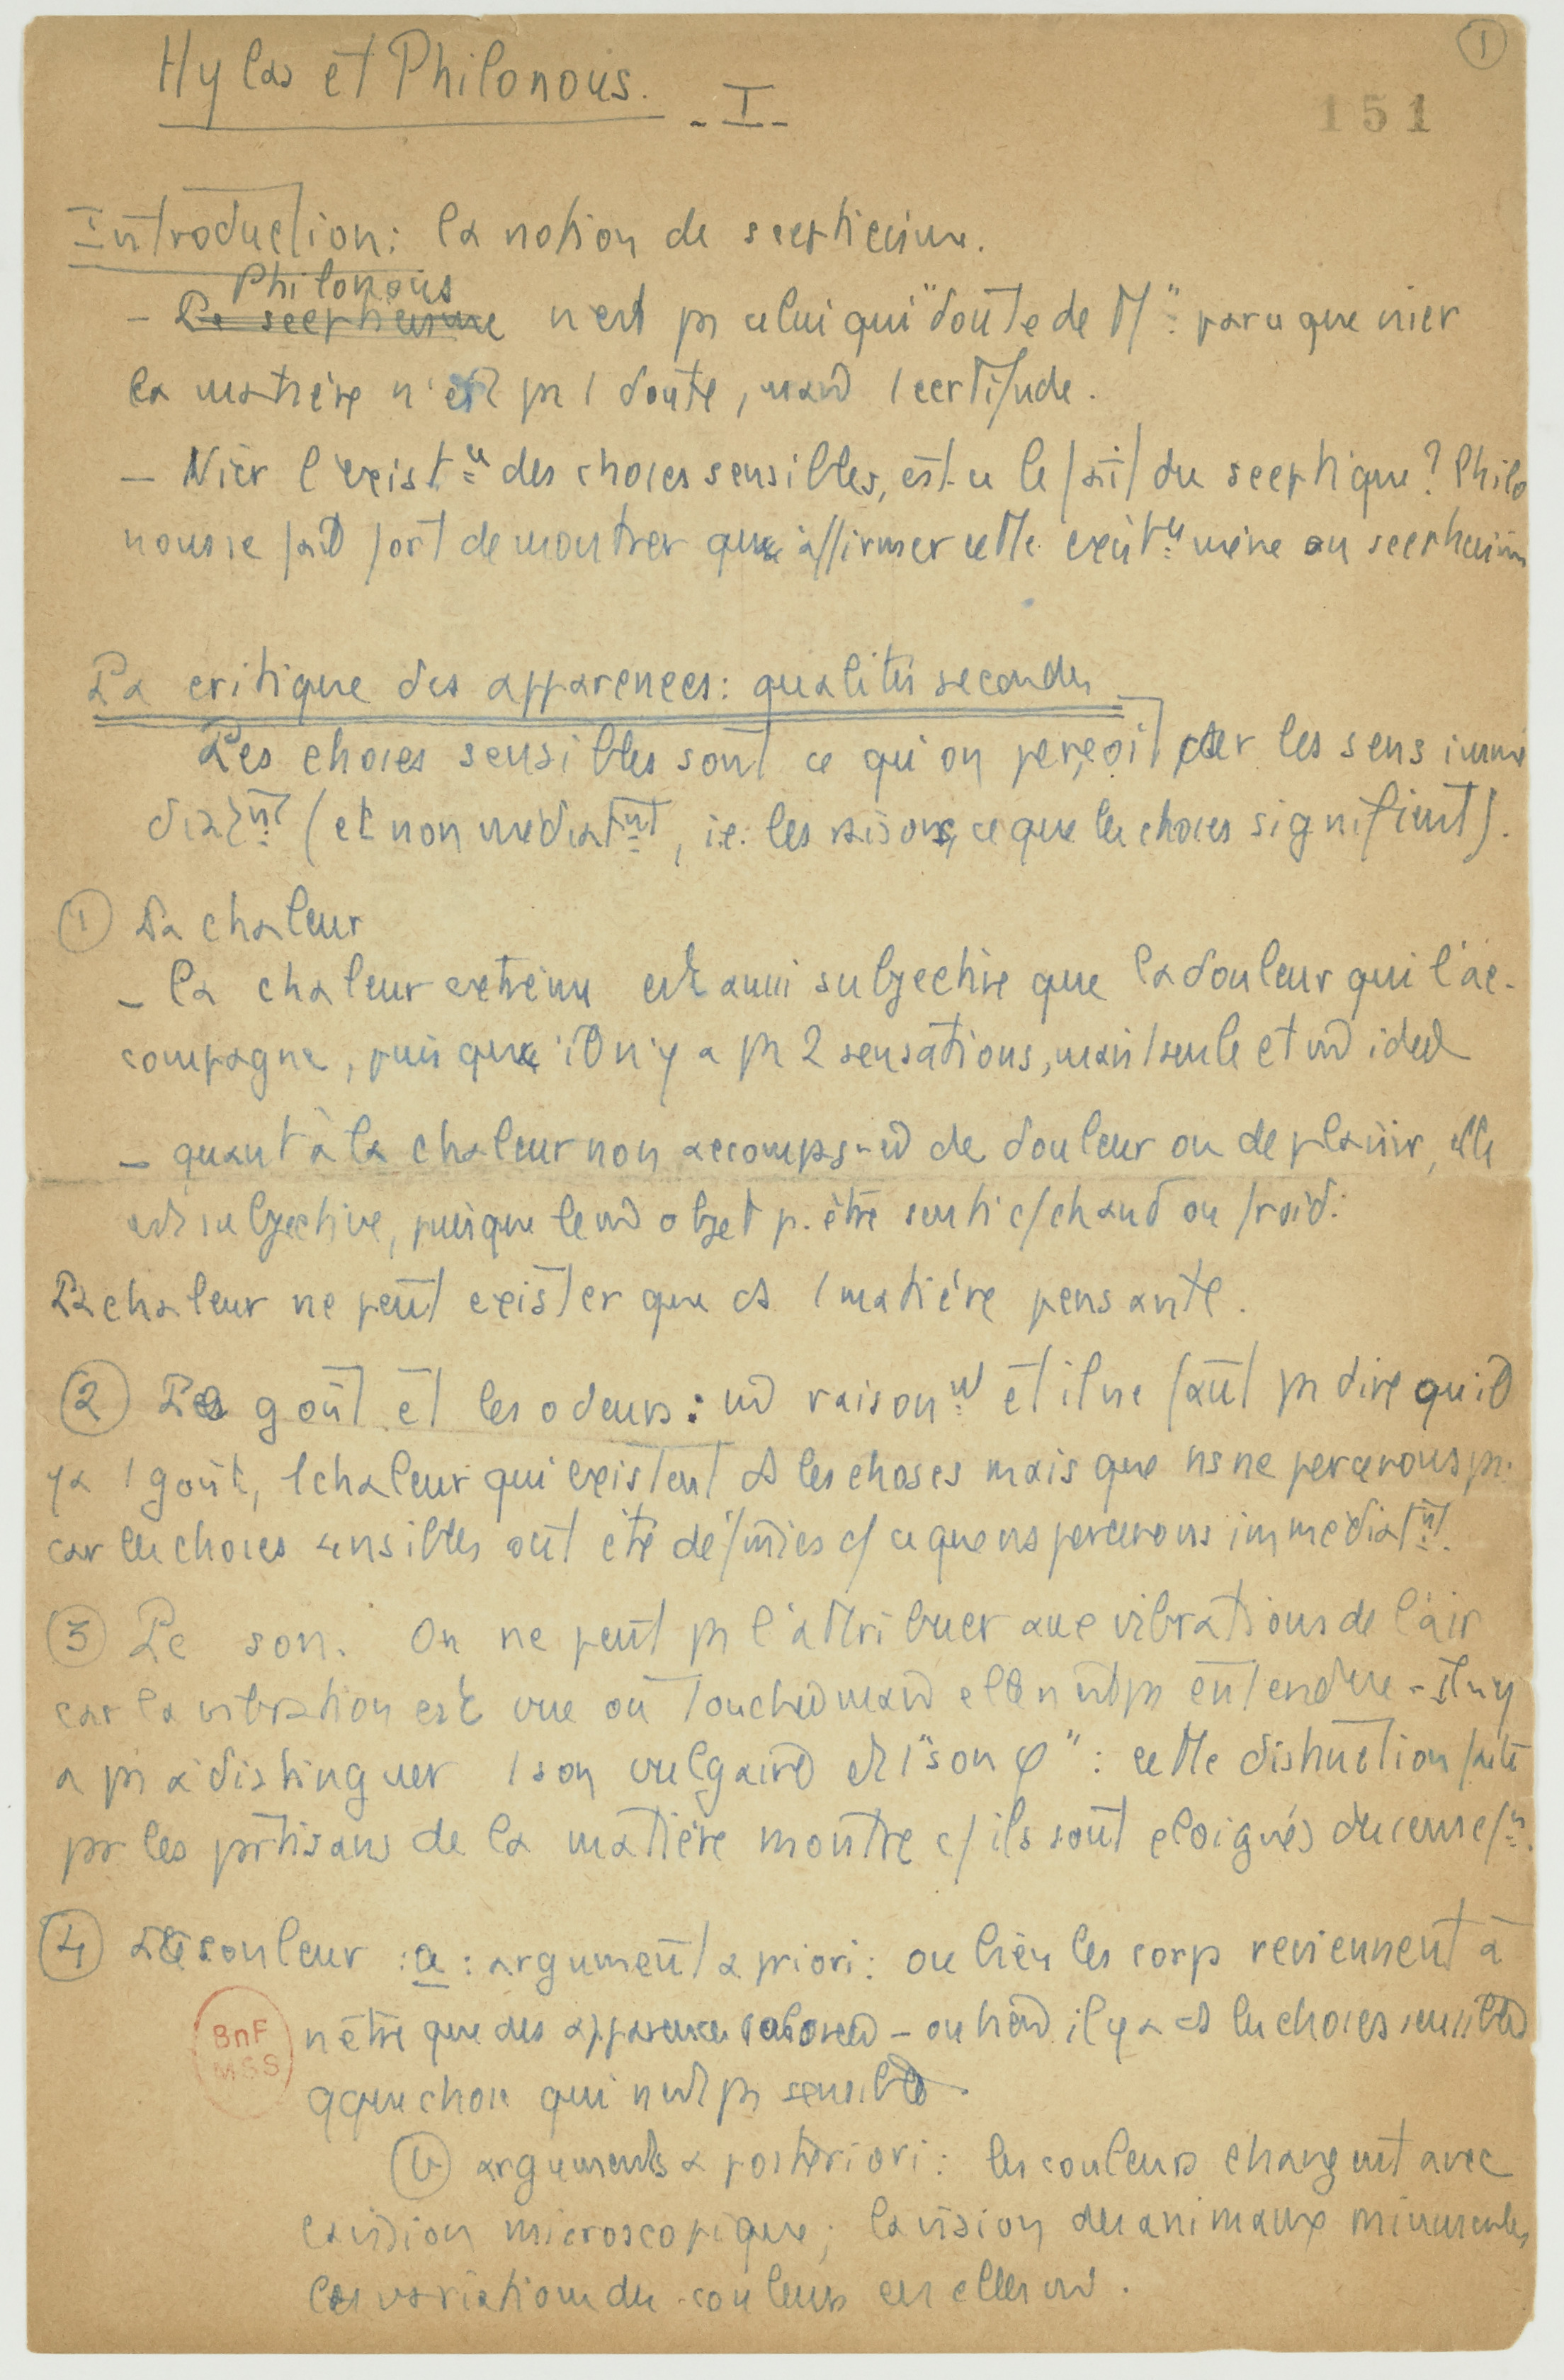 1
Hylas et Philonous. - I -
151
Introduction : la notion de scepticisme.
Philonous
- Le scepticisme n'est ps celui qui "doute de M" : parce que nier
la matière n'est ps 1 doute, mais 1 certitude.
- Nier l'existce des choses sensibles, est-ce le fait du sceptique ? Philo
nous se fait fort de montrer que affirmer cette existce mène au scepticism
La critique des apparences : qualités secondes
Les choses sensibles sont ce qu'on perçoit par les sens immé
diatnt (et non médiatnt, i.e. les raisons, ce que les choses signifient).
1 La chaleur
- la chaleur extrême est aussi subjective que la douleur qui l'ac-
compagne, puisque il n'y a ps 2 sensations, mais 1 seule et m̂ idée
- quant à la chaleur non accompagnée de douleur ou de plaisir, elle
est subjective, puisque le m̂ objet p. être senti c/ chaud ou froid.
La chaleur ne peut exister que ds 1 matière pensante.
2 Le goût et les odeurs : m̂ raisonnt et il ne faut ps dire qu'il
y a 1 goût, 1 chaleur qui existent ds les choses mais que ns ne percevons ps.
car les choses sensibles ont été définies c/ ce que ns percevons immédiatnt.
3 Le son. On ne peut ps l'attribuer aux vibrations de l'air
car la vibration est vue ou touchée mais elle n'est ps entendue - Il n'y
a ps à distinguer 1 son vulgaire et 1 "son φ" : cette distinction faite
pr les prtisans de la matière montre c/ ils sont éloignés du sens c/n.
4 La couleur : a : argument a priori : ou bien les corps reviennent à
n'être que des apparences colorées - ou bien il y a ds les choses sensibles
qque chose qui n'est ps sensible.
b arguments a posteriori : les couleurs changent avec
la vision microscopique ; la vision des animaux minuscules,
les variations des couleurs en elles m̂.
BnF
MSS